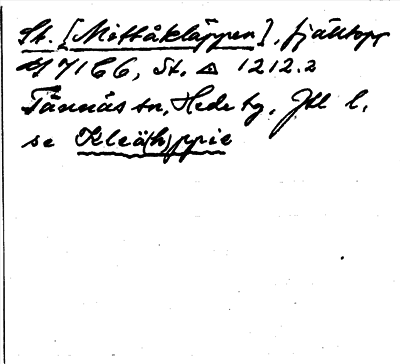 St. [Mittåkläppen], fjälltopp
47166, St. △ 1212.2
Tännäs sn, Hede tg, Jtl l.
se Kleä(h)ppie